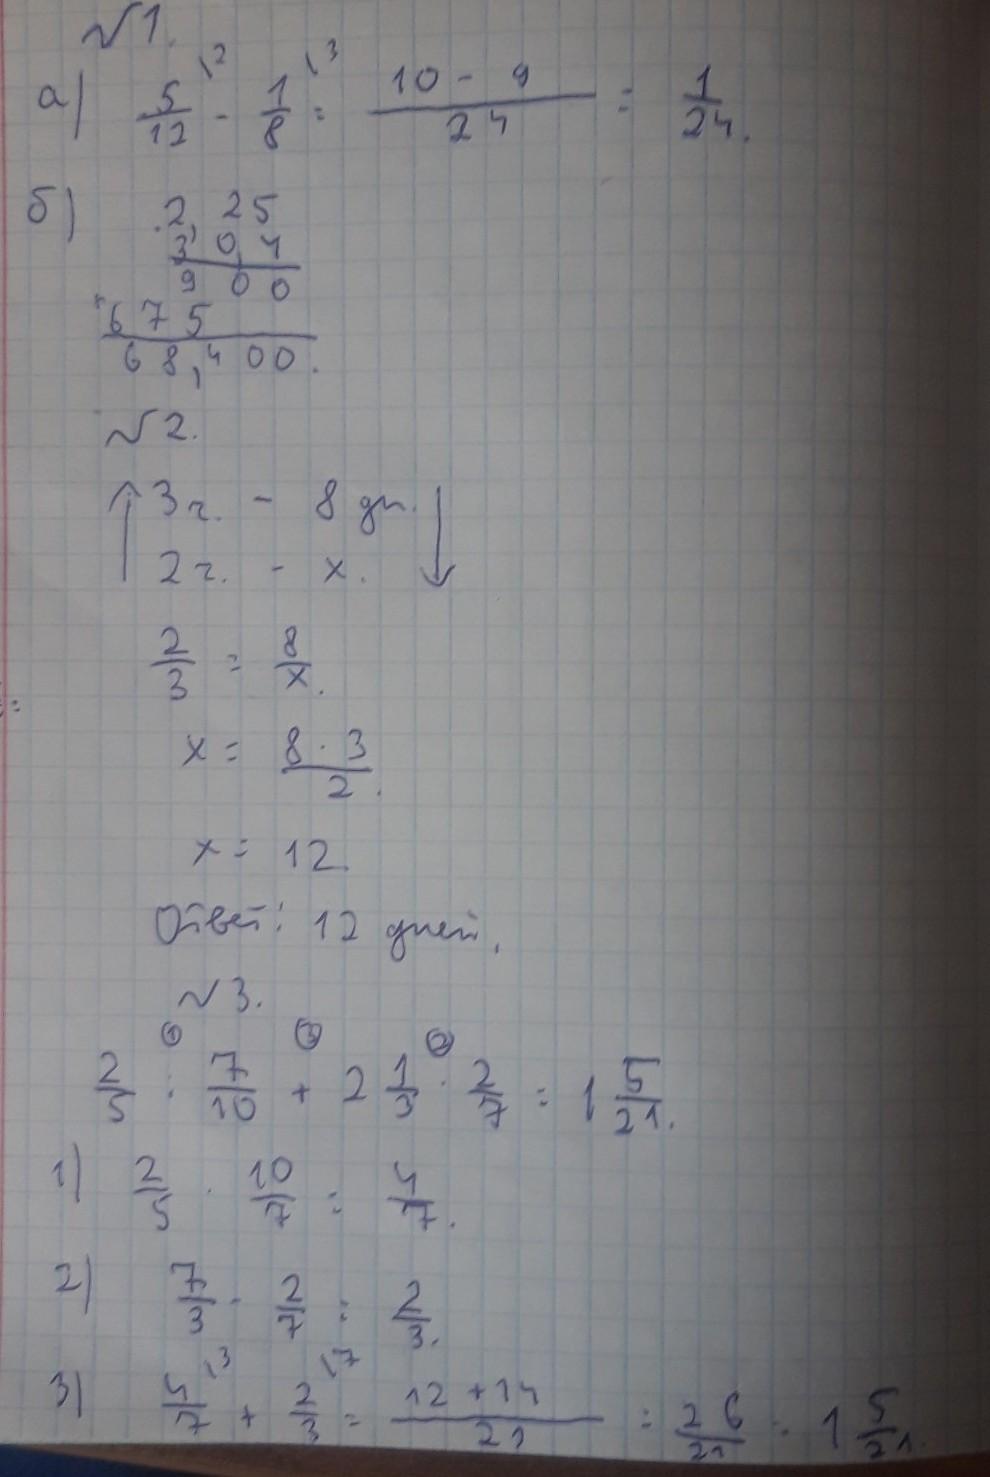 №1.
а) 5/12 \2 - 1/8 \3 = (10 - 9)/24 = 1/24.
б) 2,25
30,4
900
+675
68,400.
№2.
↑ 3 г. - 8 дн. ↓
2 г. - x.
2/3 = 8/x.
x = (8 · 3)/2.
x = 12.
Ответ: 12 дней.
№3.
2/5 : 7/10 + 2 1/3 · 2/7 = 1 5/21.
1) 2/5 · 10/7 = 4/7.
2) 7/3 · 2/7 = 2/3.
3) 4/7 \3 + 2/3 \7 = (12 + 14)/21 = 26/21 = 1 5/21.